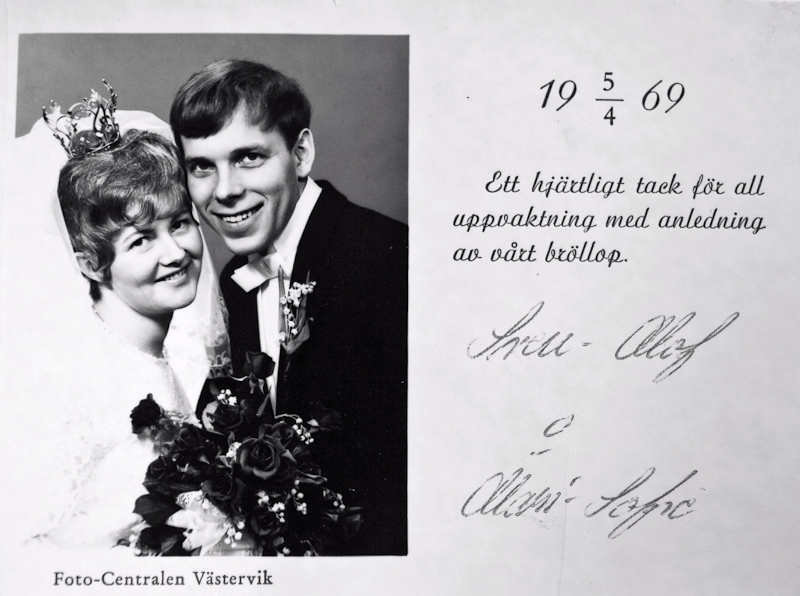 19 5/4 69
Ett hjärtligt tack för all
uppvaktning med anledning
av vårt bröllop.
Sven-Olof
o
Mari-Sofie
Foto-Centralen Västervik